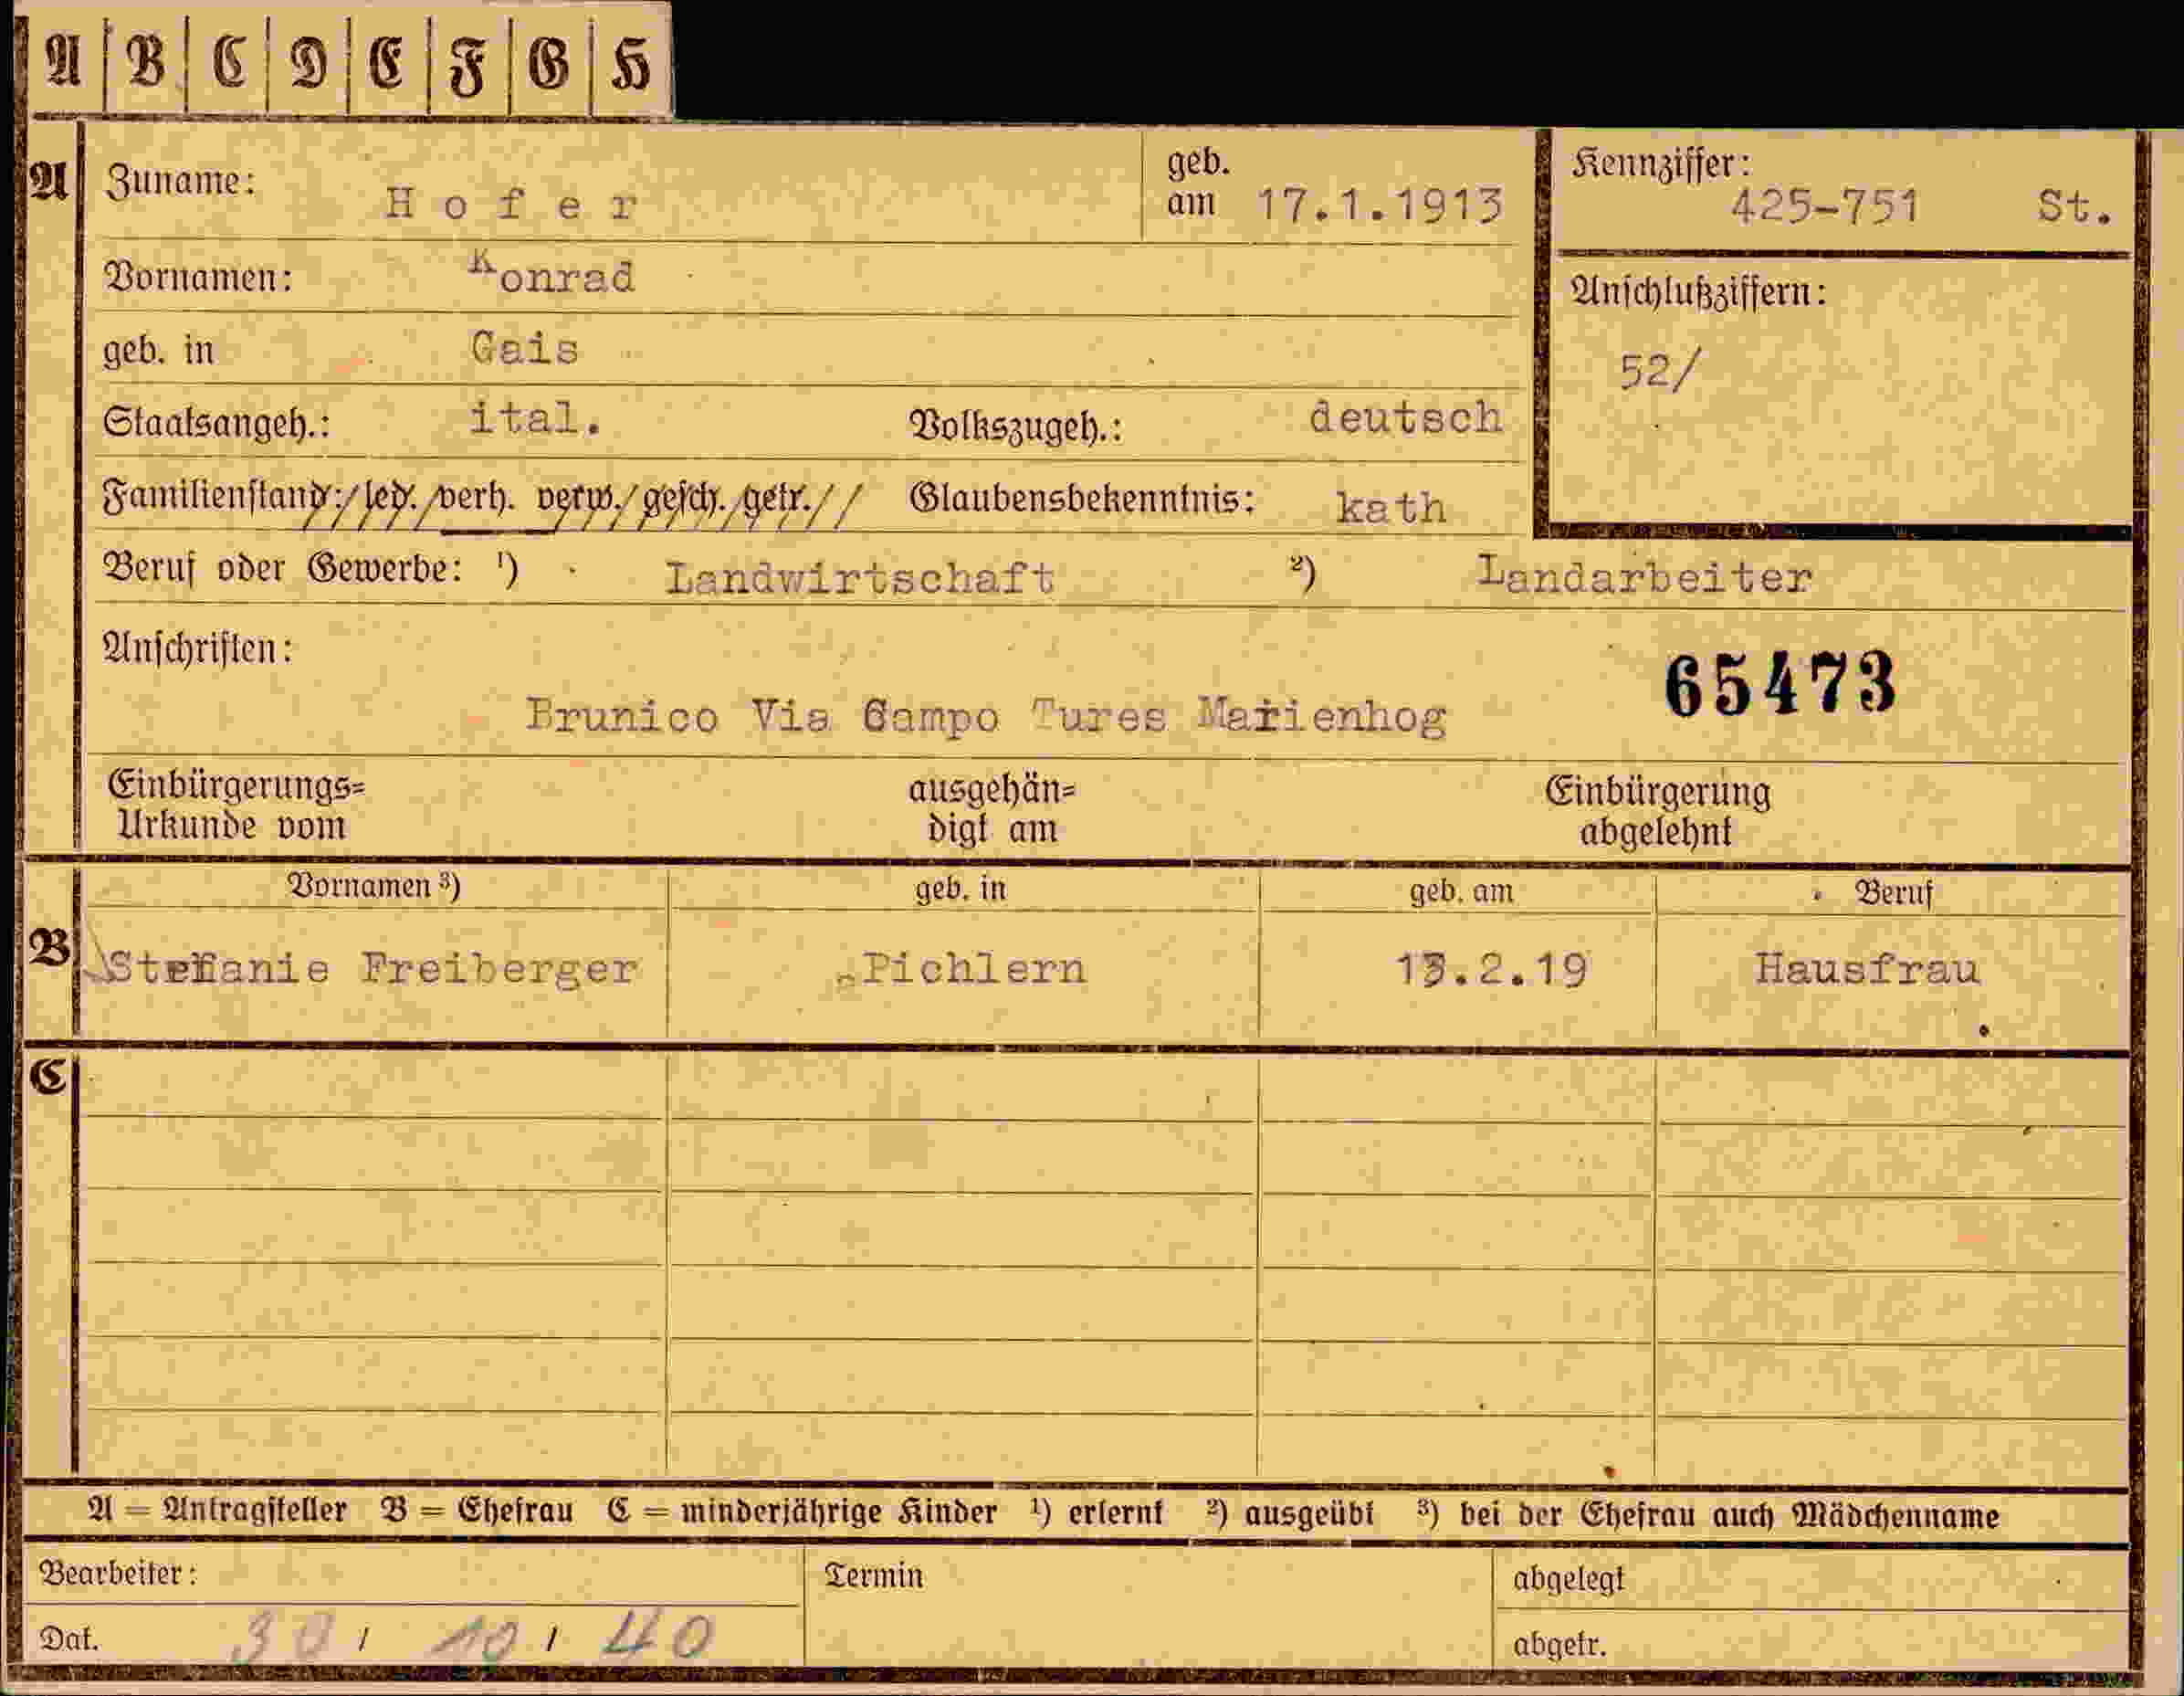 A B C D E F G H
A Zuname: Hofer geb. am 17.1.1913 Kennziffer: 425-751 St.
Vornamen: Konrad
Anschlußziffern:
geb. in Gais
52/
Staatsangeh.: ital. Volkszugeh.: deutsch
Familienstand: led. verh. verw. gesch. getr. Glaubensbekenntnis: kath
Beruf oder Gewerbe: ¹) Landwirtschaft ²) Landarbeiter
Anschriften:
65473
Brunico Via Campo Tures Marienhog
Einbürgerungs= ausgehän= Einbürgerung
Urkunde vom digt am abgelehnt
Vornamen ³) geb. in geb. am Beruf
B Stefanie Freiberger Pichlern 13.2.19 Hausfrau
C
A = Antragsteller B = Ehefrau C = minderjährige Kinder ¹) erlernt ²) ausgeübt ³) bei der Ehefrau auch Mädchenname
Bearbeiter: Termin abgelegt
Dat. 30 / 10 / 40 abgetr.